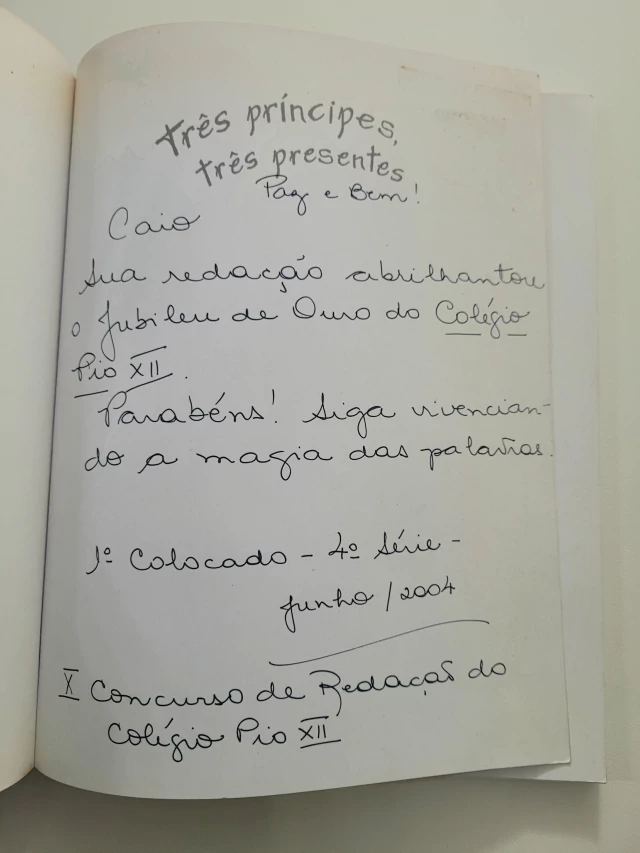 três príncipes,
três presentes
Paz e Bem!
Caio
Sua redação abrilhantou
o Jubileu de Ouro do Colégio
Pio XII.
Parabéns! Siga vivencian-
do a magia das palavras.
1º Colocado - 4º Série -
Junho/2004
X Concurso de Redação do
Colégio Pio XII